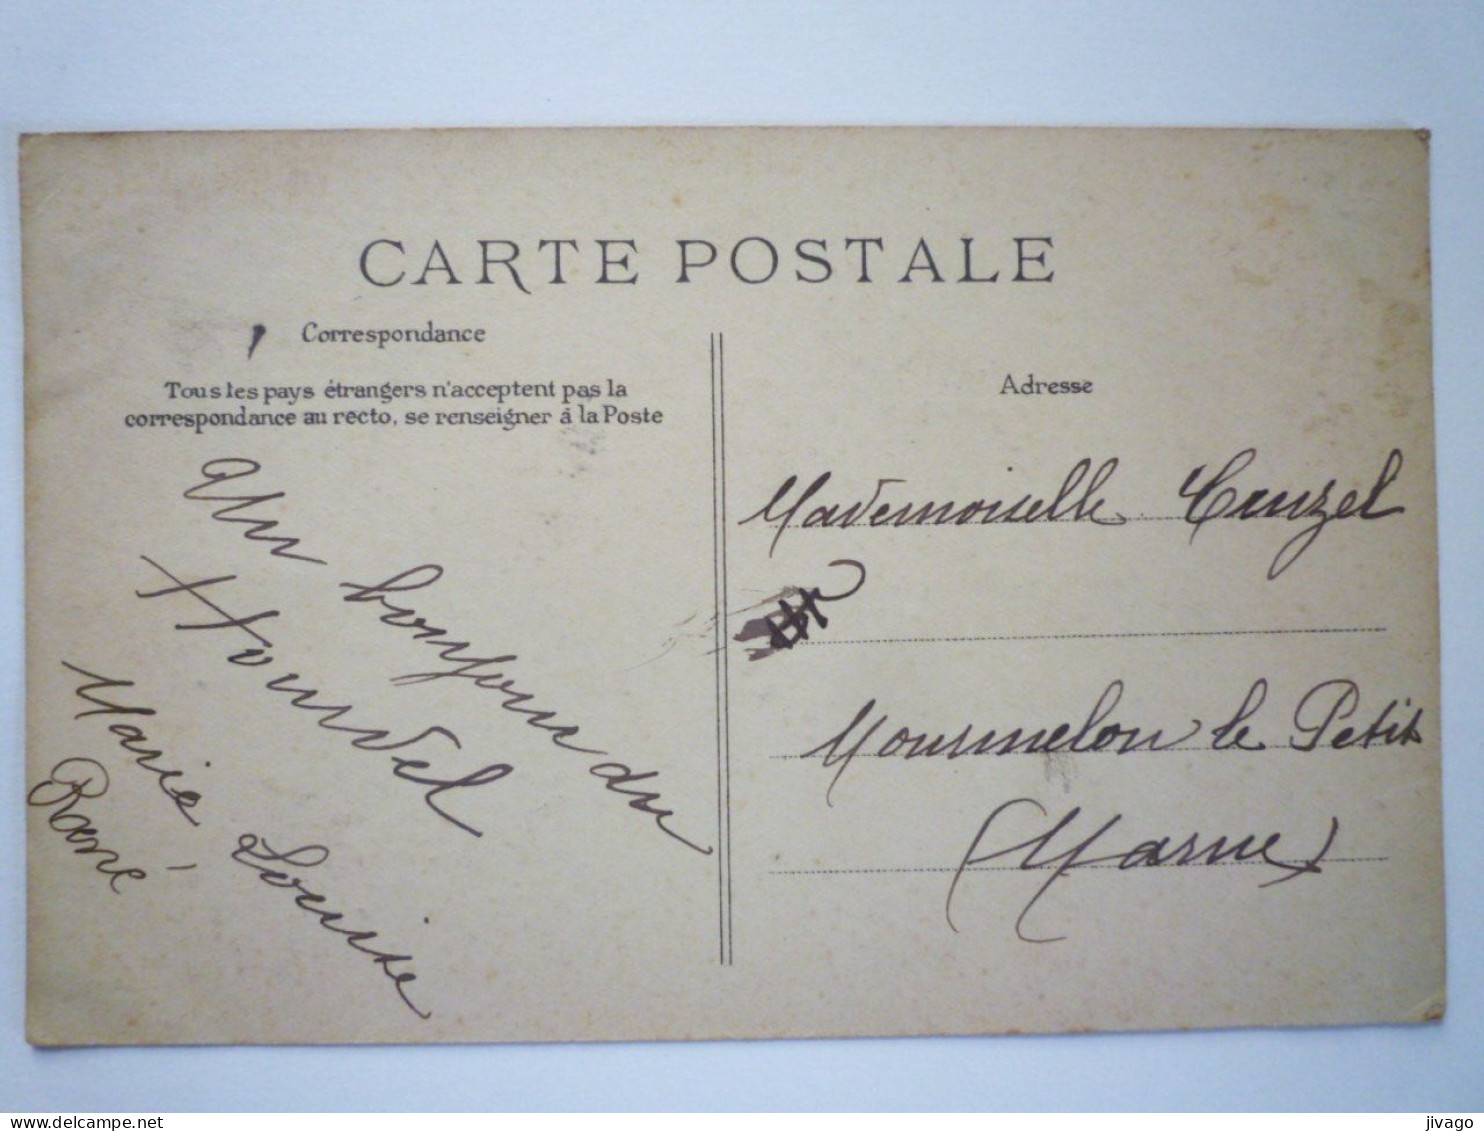 CARTE POSTALE
Correspondance
Tous les pays étrangers n'acceptent pas la
correspondance au recto, se renseigner à la Poste
Un bonjour du
Hourdel
Marie Louise
René
Adresse
Mademoiselle
Mourmelon le Petit
(Marne)
delcampe.net
jivago